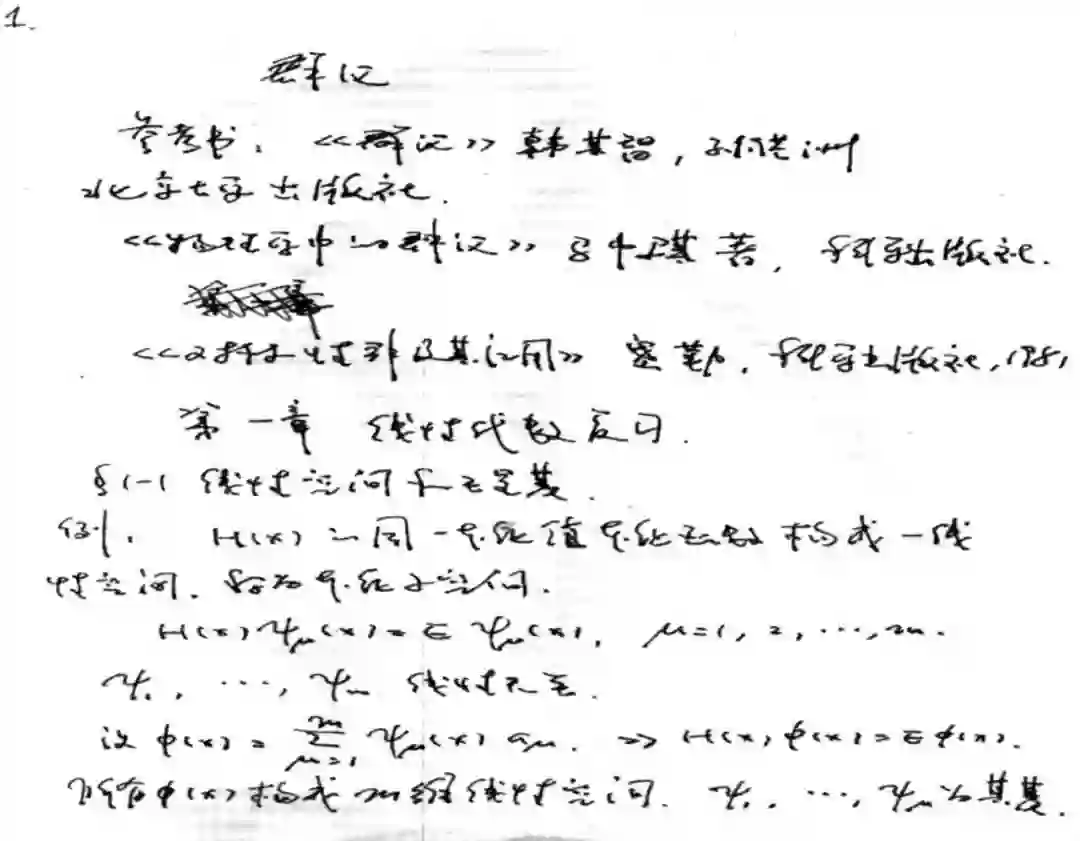 1.
群论
参考书: 《群论》韩其智, 孙洪洲
北京大学出版社.
《物理学中的群论》马中骐著, 科学出版社.
《对称性引及其应用》 , 科学出版社, 1981
第一章 线性代数复习.
§1-1 线性空间和矢量基.
例. H(x)的同一本征值本征函数构成一线
性空间. 称为本征子空间.
H(x)ψμ(x)=E ψμ(x), μ=1, 2, …, m.
ψ1, …, ψm 线性无关.
设 φ(x) = ∑_{μ=1}^{m} ψμ(x) aμ. ⇒ H(x)φ(x)=Eφ(x).
所有φ(x)构成m维线性空间. ψ1, …, ψμ为其基.